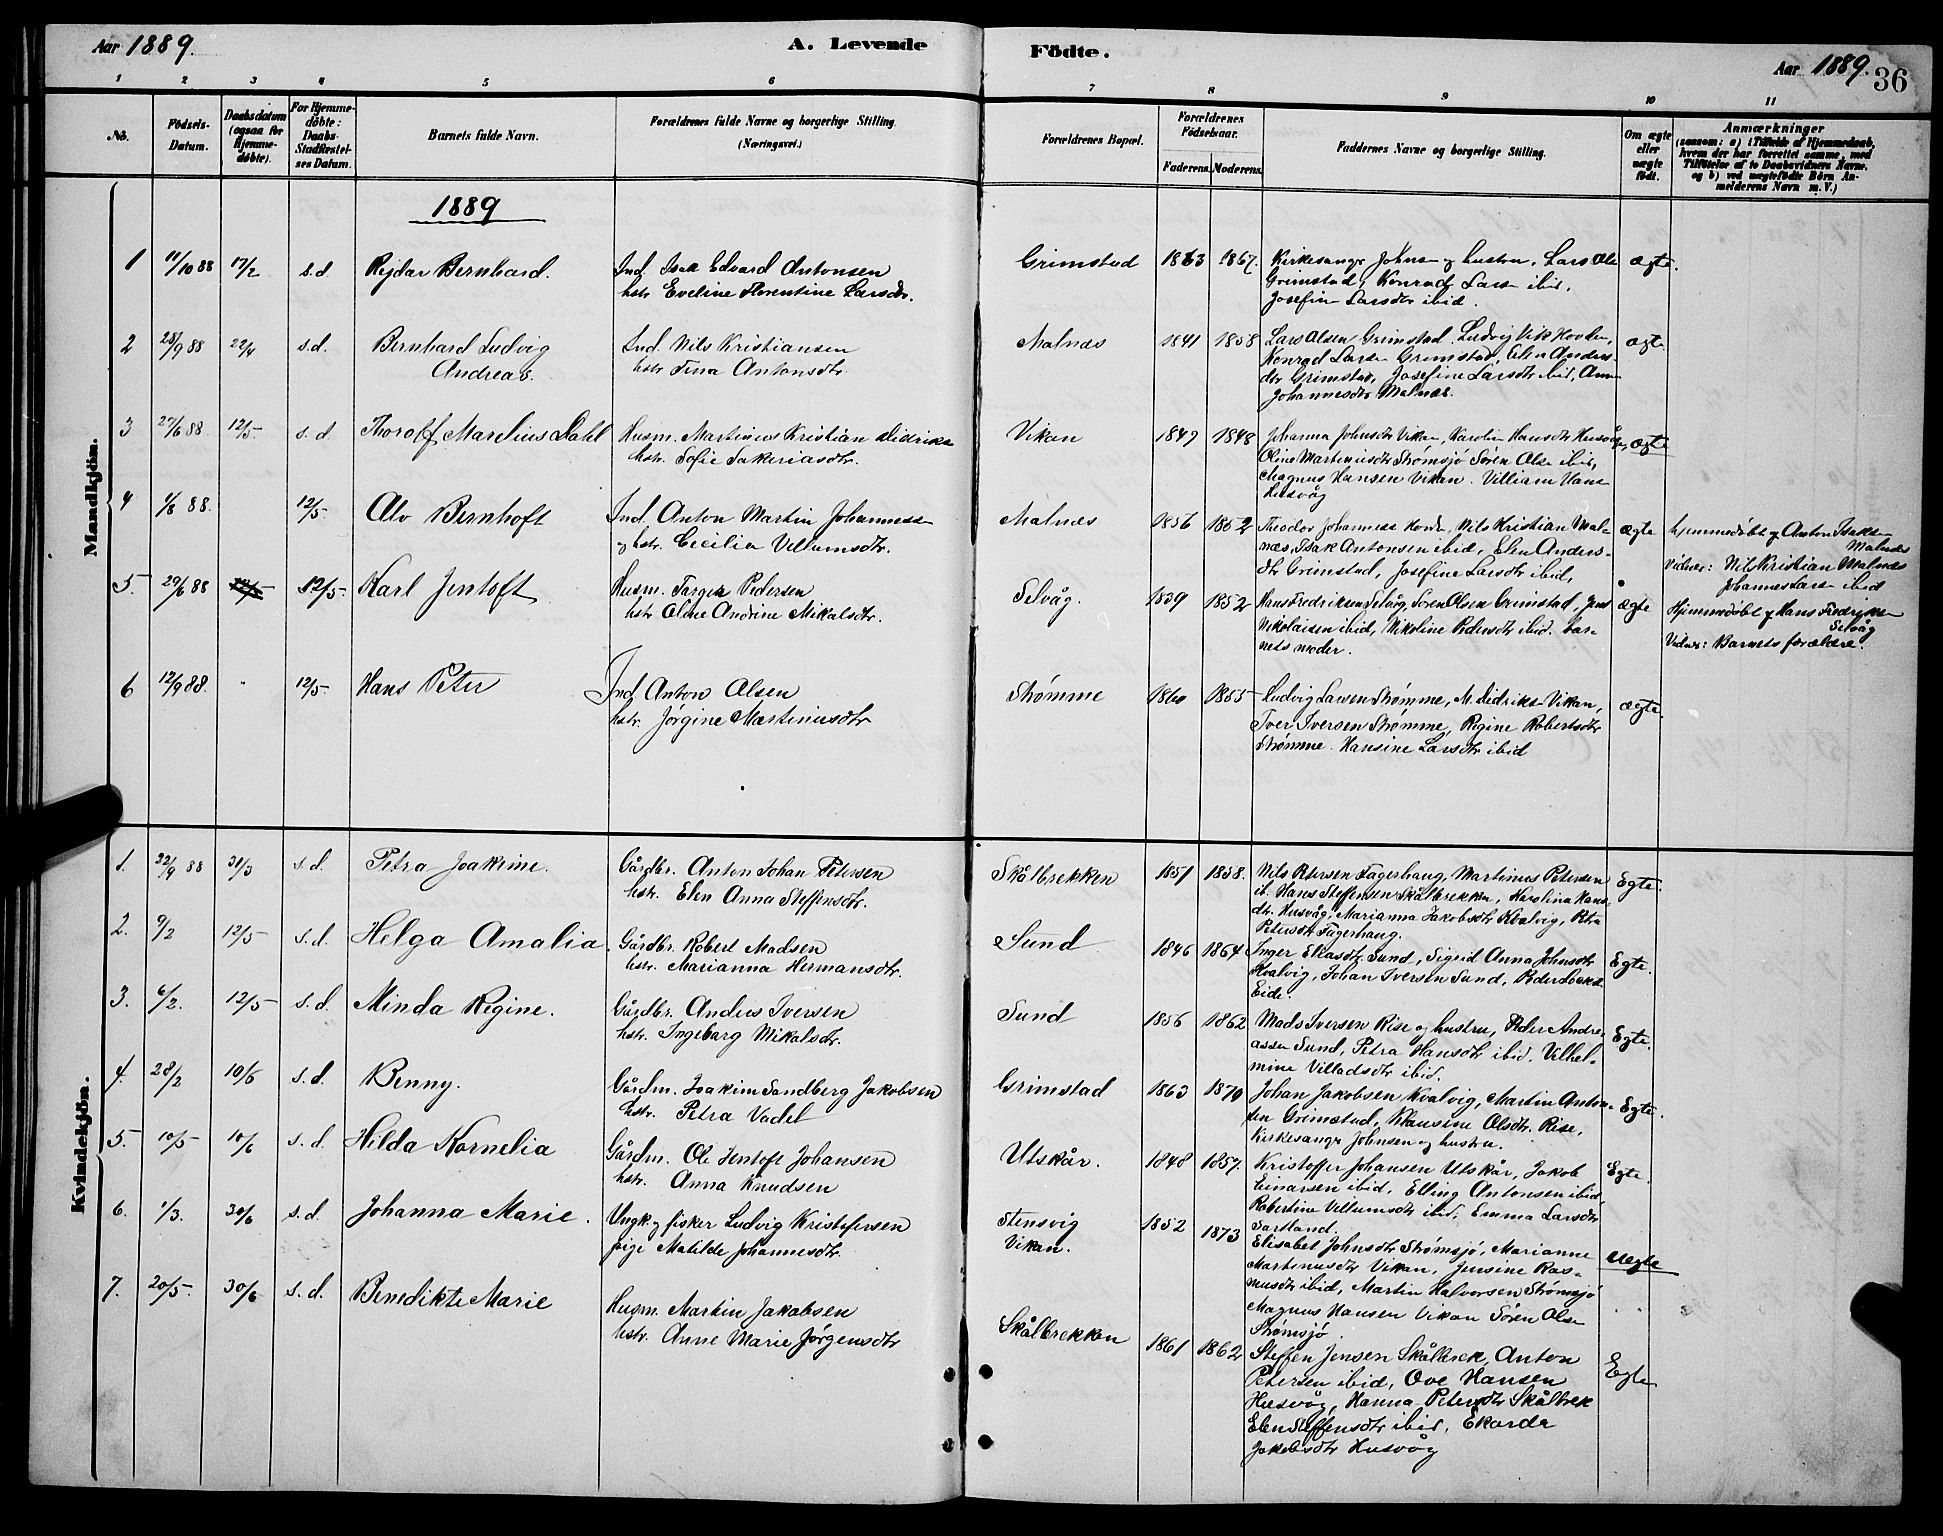 Aar 1889. A. Levende Födte. Aar 1889. 36
1 2 3 4 5 6 7 8 9 10 11
No. Födsels-Datum. Daabsdatum (ogsaa for Hjemmedöbte). For Hjemmedöbte: Daabs-Stadfæstelses Datum. Barnets fulde Navn. Forældrenes fulde Navne og borgerlige Stilling. (Næringsvei.) Forældrenes Bopæl. Forældrenes Födselsaar. Faderens. Moderens. Faddernes Navne og borgerlige Stilling. Om ægte eller uægte födt. Anmærkninger (saasom: a) i Tilfælde af Hjemmedaab, hvem der har forrettet samme, med Tilföielse af to Daabsvidners Navne, og b) ved uægtefödte Börn Anmelderens Navn m. V.)
1889
Mandkjön.
1 11/10 88 17/2 s.d. Rejdar Bernhard. Ind. Isak Edvard Antonsen Grimstad 1863 1867. Kirkesanger Johnsen og hustru, Lars Ole ægte.
hstr. Eveline Florentine Larsdtr. Grimstad, Konrad Larsen ibid,
Josefine Larsdtr ibid.
2 28/9 88 22/4 s.d. Bernhard Ludvig Ind. Nils Kristiansen Malnæs 1841 1858 Lars Olsen Grimstad. Ludvig Vik Hovden, ægte
Andreas. hstr. Tina Antonsdtr. Konrad Larsen Grimstad, Elen Anders-
dtr Grimstad, Josefine Larsdtr ibid, Anna
Johannesdtr Malnæs.
3 29/6 88 12/5 s.d. Thorolf Marelius Dahl Husm. Martinus Kristian Didriksen Vikan 1849 1848 Johanna Johnsdtr Vikan, Karolin Hansdtr Husvåg, ægte
hstr. Sofie Sakariasdtr. Oline Martinusdtr Strømsjö Sören Olsen ibid,
Magnus Hansen Vikan. Villiam Hansen
Husvåg
4 1/8 88 12/5 Alv Bernhoft Ind. Anton Martin Johannessen Malnæs 1856 1852 Theodor Johannessen Hovde, Nils Kristian Mal- ægte hjemmedöbt af Anton Isaksen
og hstr. Cecilia Villumsdtr. næs, Isak Antonsen ibid, Elen Anders- Malnæs
dtr Grimstad, Josefine Larsdtr ibid, Vidner: Nils Kristian Malnæs
Johannes Larsen ibid
5. 29/6 88 12/5 Karl Jentoft Husm. Torger Pedersen Selvåg. 1839 1852 Hans Fredriksen Selvåg, Sören Olsen Grimstad, Jens ægte Hjemmedöbt af Hans Fredriksen
hstr. Oline Andrine Mikalsdtr. Nikolaisen ibid, Nikoline Pedersdtr ibid. bar- Selvåg
nets moder. Vidner: Barnets forældre.
6 12/9 88. 12/5 Hans Peter Ind. Anton Olsen Strømme 1860 1855 Ludvig Larsen Strømme, M. Didriksen Vikan, ægte.
hstr. Jörgine Martinusdtr Iver Iversen Strømme, Regine Robertsdtr
Strømme. Hansine Larsdtr ibid
Kvindekjön.
1. 22/9 88 31/3 s.d. Petra Joakime. Gårdbr. Anton Johan Petersen Skålbrekken 1851 1858. Nils Petersen Fagerhaug, Martinus Petersen Egte.
hstr. Elen Anna Steffensdtr. ib. Hans Steffensen Skålbrekken, Karolina Hans-
dtr. Husvåg, Marianna Jakobsdtr Kvalvig, Petra
Petersdtr Fagerhaug.
2. 9/2 12/5 s.d. Helga Amalia. Gårdbr. Robert Madsen Sund 1846 1864 Inger Eliasdtr Sund, Sigrid Anna Johnsdtr Egte.
hstr. Marianna Hermansdtr. Kvalvig, Johan Iversen Sund,
Eide.
3. 6/2. 12/5 s.d. Minda Regine. Gårdbr. Anders Iversen Sund 1856 1862 Mads Iversen Rise og hustru, Peder Andre- Egte.
hstr. Ingeborg Mikalsdtr. assen Sund, Petra Hansdtr ibid, Vilhel-
mine Villadsdtr ibid.
4. 28/2 10/6 s.d. Benny. Gårdm. Joakim Sandberg Jakobsen Grimstad 1863 1870 Johan Jakobsen Kvalvig, Martin Anton- Egte.
hstr. Petra Vadel sen Grimstad, Hansine Olsdtr. Rise,
Kirkesanger Johnsen og hustru.
5. 10/5 10/6 s.d. Hilda Kornelia Gårdm. Ole Jentoft Johansen Utskår. 1848 1857. Kristoffer Johansen Utskår, Jakob Egte.
hstr. Anna Knudsen Einarsen ibid, Elling Antonsen ibid
Robertine Villumsdtr ibid, Emma Larsdtr
Sortland.
6. 1/3. 30/6 s.d. Johanna Marie. Ungk. og fisker Ludvig Kristofersen Stensvig 1852 1873 Elisabet Johnsdtr Strømsjö, Marianne Uegte
pige Matilde Johannesdtr. Vikan. Martinusdtr Vikan, Jensine Ras-
musdtr ibid, Martin Halvorsen Strømsjö
Magnus Hansen Vikan Sören Olsen
Strømsjö
7. 20/5 30/6 s.d. Benedikte Marie Husm. Martin Jakobsen Skålbrekken 1861 1862 Steffen Jensen Skålbrek, Anton Egte
hstr. Anne Marie Jörgensdtr Petersen ibid, Ove Hansen
Husvåg, Hanna Petersdtr Skålbrek
Elen Steffensdtr ibid, Ekarda
Jakobsdtr Husvåg